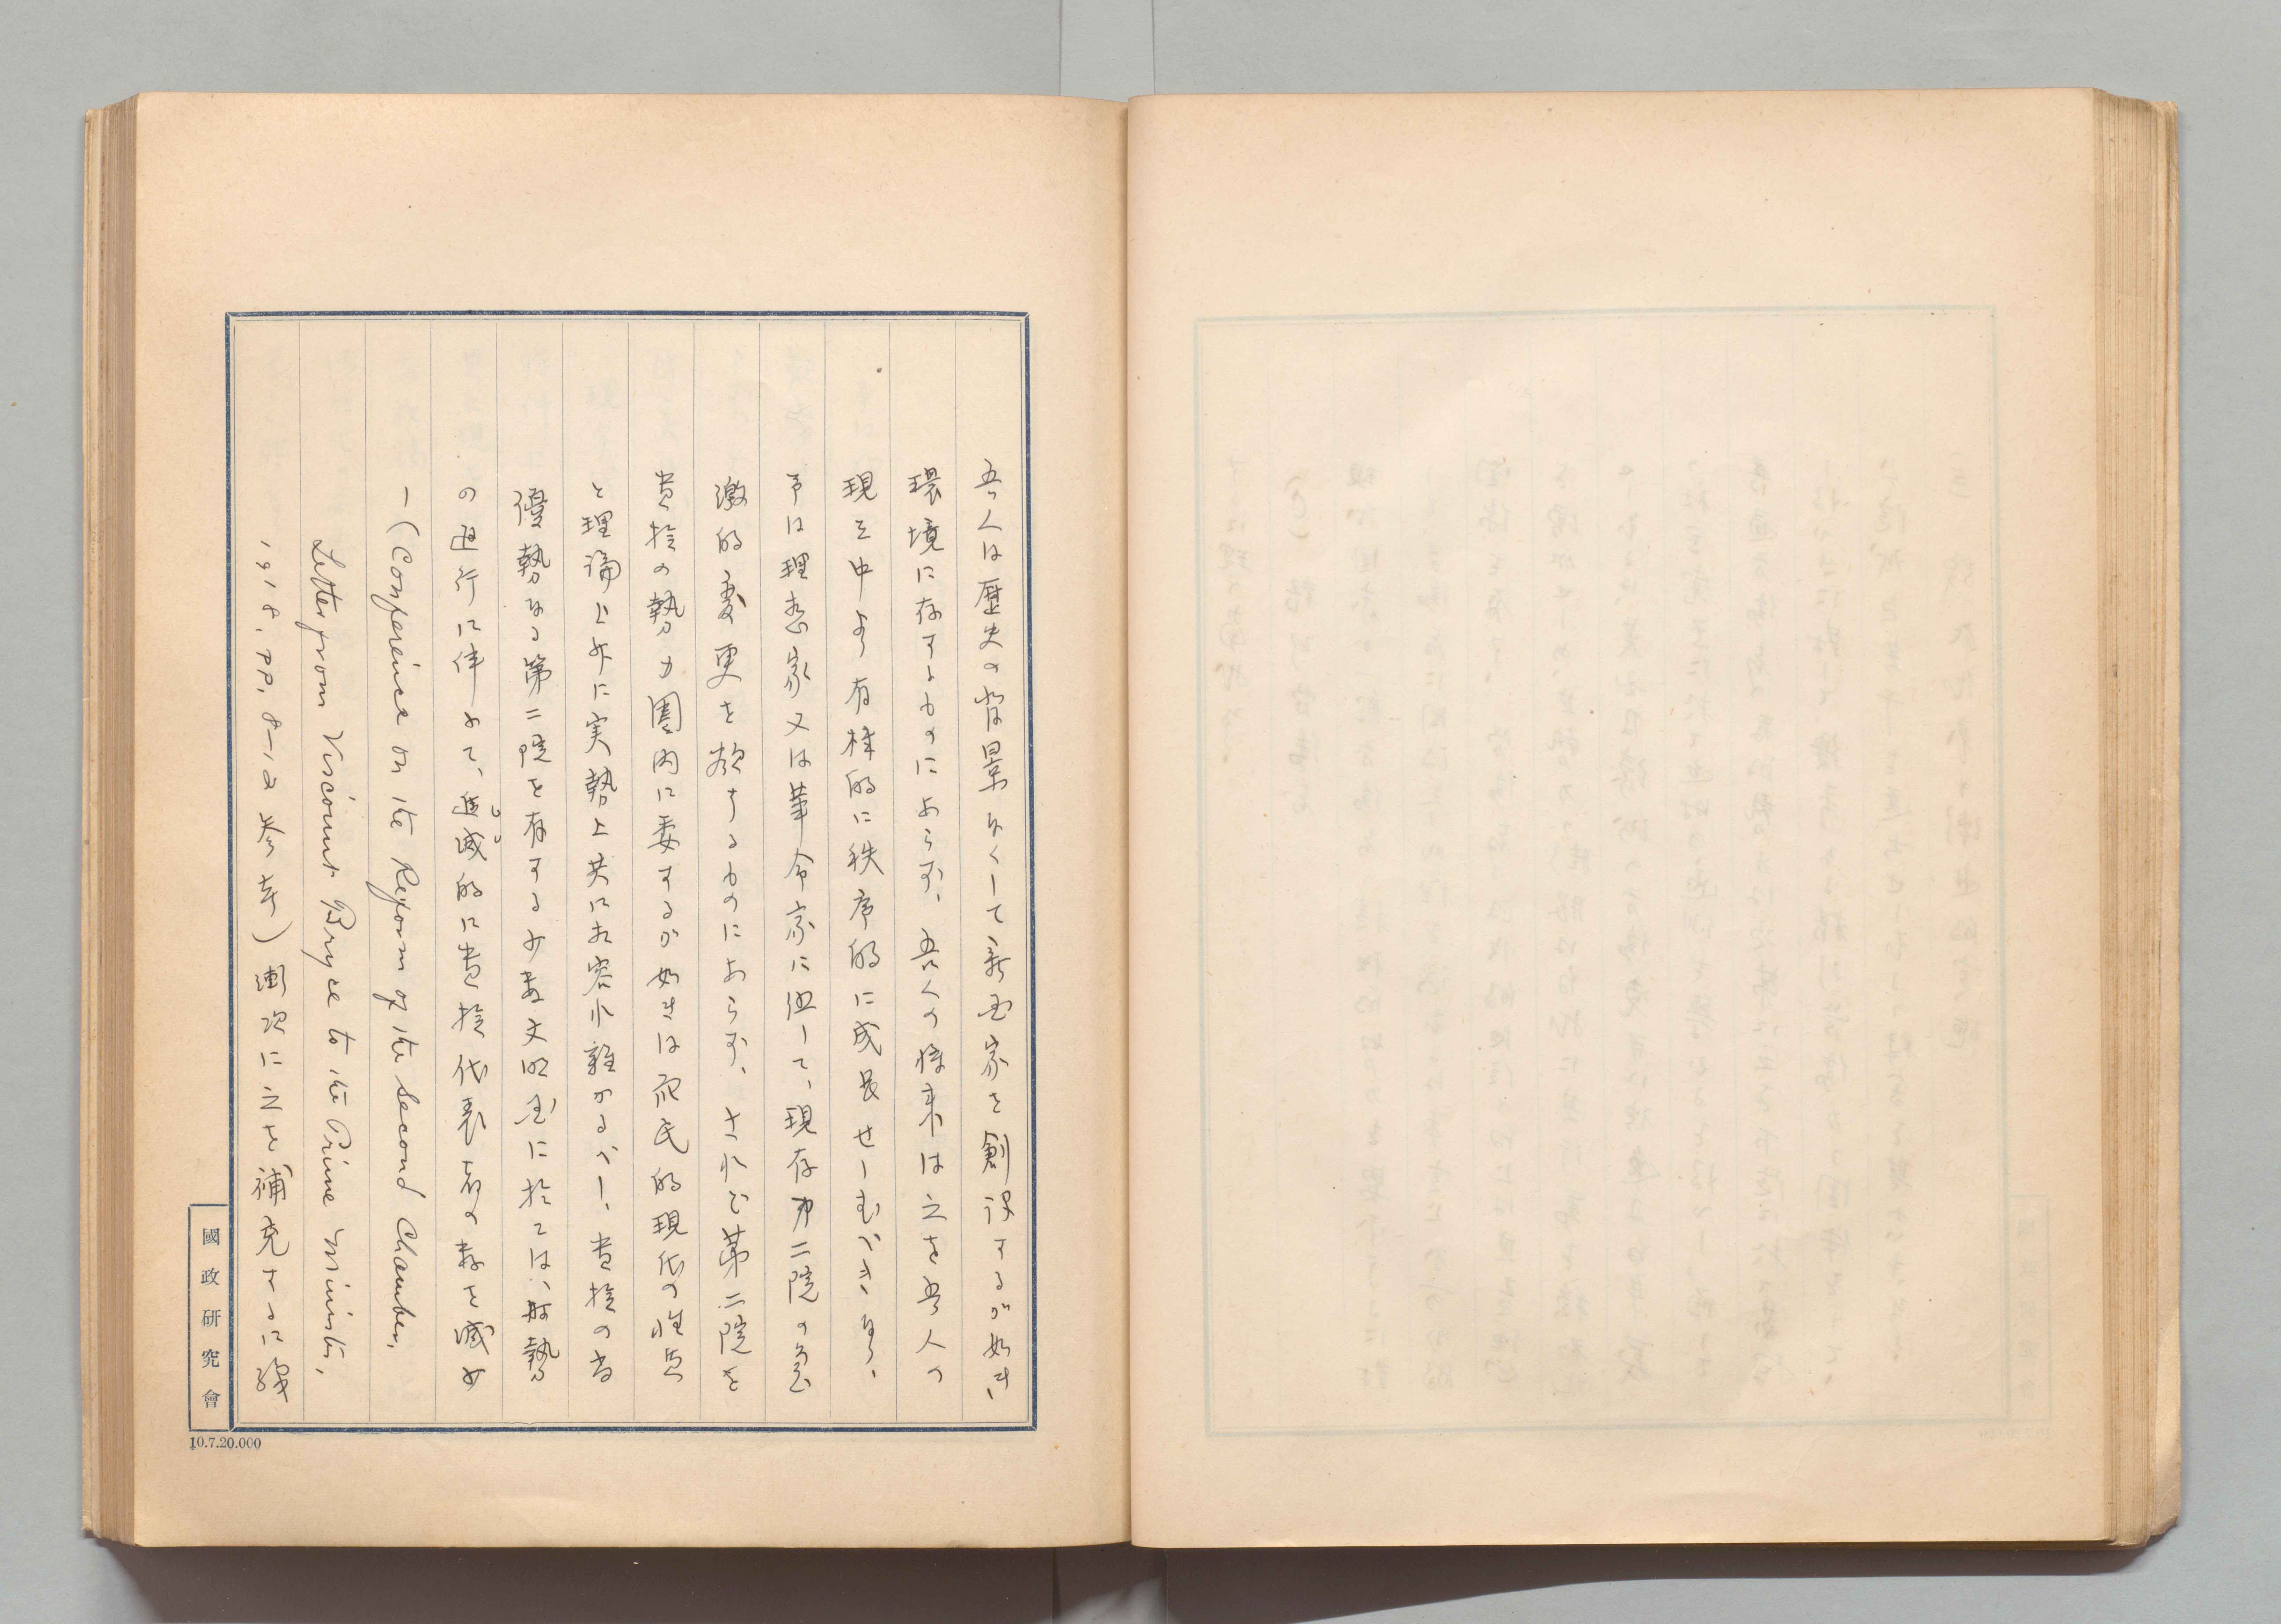 吾人は歴史の背景なくして新国家を創設するが如き
環境に存するものにあらず、吾人の将来は之を吾人の
現在中より有機的に秩序的に成長せしむべきなり、
予は理想家又は革命家に伍して、現存第二院の急
激的変更を欲するものにあらず、されど第二院を
貴族の勢力圏内に委するが如きは
と理論上并に実勢上共に相容れ難かるべし、貴族の
優勢なる第二院を有する少数文明国に於ては、
の進行に伴ふて、逓減的に貴族代表者の数を減少
し(Conference on the Reform of the Second Chamber,
Letter from Viscount Bryce to the Prime Minister,
1918, pp. 8-12 参考)漸次に之を補充するに
國政研究會
10.7.20.000